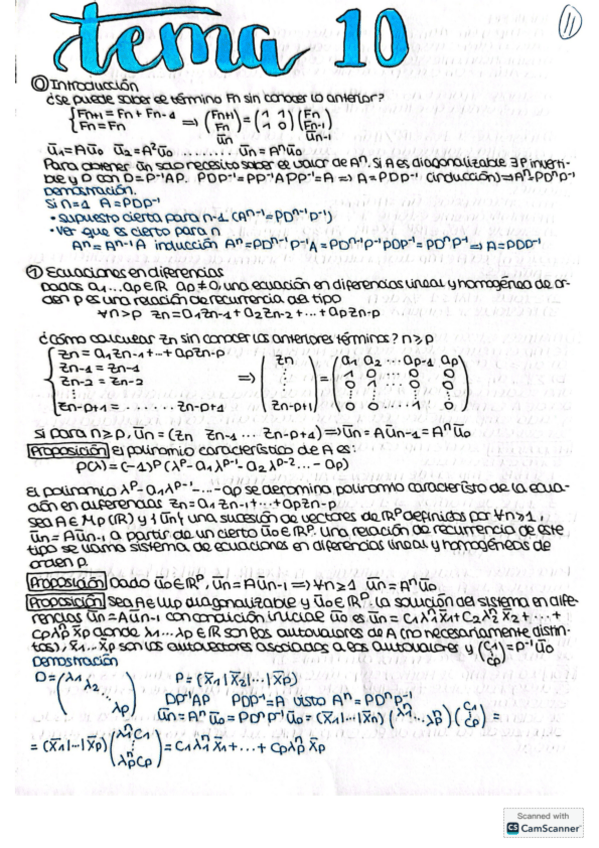 tema 10
11
⓪ Introducción
¿Se puede saber el término Fn sin conocer lo anterior?
{Fn+1 = Fn + Fn-1
{Fn = Fn ⟹ (Fn+1 / Fn) = (1 1 / 1 0) (Fn / Fn-1)
ūn ūn-1
ū1 = Aū0 ū2 = A²ū0 ........ ūn = Aⁿū0
Para obtener ūn solo necesito saber el valor de Aⁿ. Si A es diagonalizable ∃ P inverti-
ble y D con D = P⁻¹AP. PDP⁻¹ = PP⁻¹APP⁻¹ = A ⟹ A = PDP⁻¹ (inducción) ⟹ Aⁿ = PDⁿP⁻¹
Demostración.
Si n=1 A = PDP⁻¹
• supuesto cierta para n-1 (Aⁿ⁻¹ = PDⁿ⁻¹P⁻¹)
• ver que es cierto para n
Aⁿ = Aⁿ⁻¹A inducción Aⁿ = PDⁿ⁻¹P⁻¹A = PDⁿ⁻¹P⁻¹PDP⁻¹ = PDⁿP⁻¹ ⟹ A = PDP⁻¹
① Ecuaciones en diferencias
Dados a1...ap ∈ ℝ ap ≠ 0, una ecuación en diferencias lineal y homogénea de or-
den p es una relación de recurrencia del tipo
∀n>p zn = a1zn-1 + a2zn-2 + ... + apzn-p
¿Cómo calcular zn sin conocer los anteriores términos? n ≥ p
{zn = a1zn-1 + ... + apzn-p
zn-1 = zn-1
zn-2 = zn-2
⋮
zn-p+1 = ....... zn-p+1 ⟹ (zn ⋮ zn-p+1) = (a1 a2 ... ap-1 ap / 1 0 ... 0 0 / 0 1 ... 0 0 / ⋮ / 0 0 ... 1 0)
si para n ≥ p, ūn = (zn zn-1 ... zn-p+1) ⟹ ūn = Aūn-1 = Aⁿū0
Proposición El polinomio característico de A es:
P(λ) = (-1)ᵖ (λᵖ - a1λᵖ⁻¹ - a2λᵖ⁻² ... - ap)
El polinomio λᵖ - a1λᵖ⁻¹ - ... - ap se denomina polinomio característico de la ecua-
ción en diferencias zn = a1zn-1 + ... + apzn-p
Sea A ∈ Mp(ℝ) y {ūn} una sucesión de vectores de ℝᵖ definidos por ∀n ≥ 1,
ūn = Aūn-1 a partir de un cierto ū0 ∈ ℝᵖ. Una relación de recurrencia de este
tipo se llama sistema de ecuaciones en diferencias lineal y homogéneas de
orden p.
Proposición Dado ū0 ∈ ℝᵖ, ūn = Aūn-1 ⟹ ∀n ≥ 1 ūn = Aⁿū0
Proposición Sea A ∈ Mp diagonalizable y ū0 ∈ ℝᵖ. La solución del sistema en dife-
rencias ūn = Aūn-1 con condición inicial ū0 es ūn = C1λ1ⁿx̄1 + C2λ2ⁿx̄2 + ... +
Cpλpⁿx̄p donde λ1...λp ∈ ℝ son los autovalores de A (no necesariamente distin-
tos), x̄1...x̄p son los autovectores asociados a los autovalores y (C1 ⋮ Cp) = P⁻¹ū0
Demostración
D = (λ1 λ2 ⋱ λp) P = (x̄1|x̄2|...|x̄p)
DP⁻¹AP PDP⁻¹ = A visto Aⁿ = PDⁿP⁻¹
ūn = Aⁿū0 = PDⁿP⁻¹ū0 = (x̄1|...|x̄n) (λ1ⁿ ⋱ λpⁿ) (C1 ⋮ Cp) =
= (x̄1|...|x̄p) (λ1ⁿC1 ⋮ λpⁿCp) = C1λ1ⁿx̄1 + ... + Cpλpⁿx̄p
Scanned with
CS CamScanner